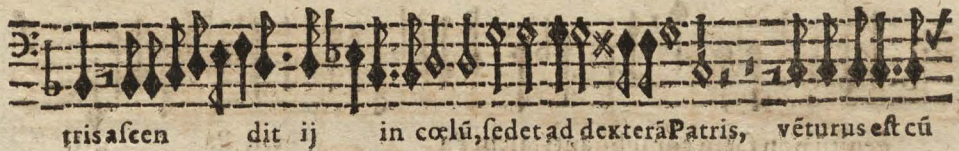 tris aſcen dit ij in cœlū, ſedet ad dexterā Patris, vēturus eſt cū